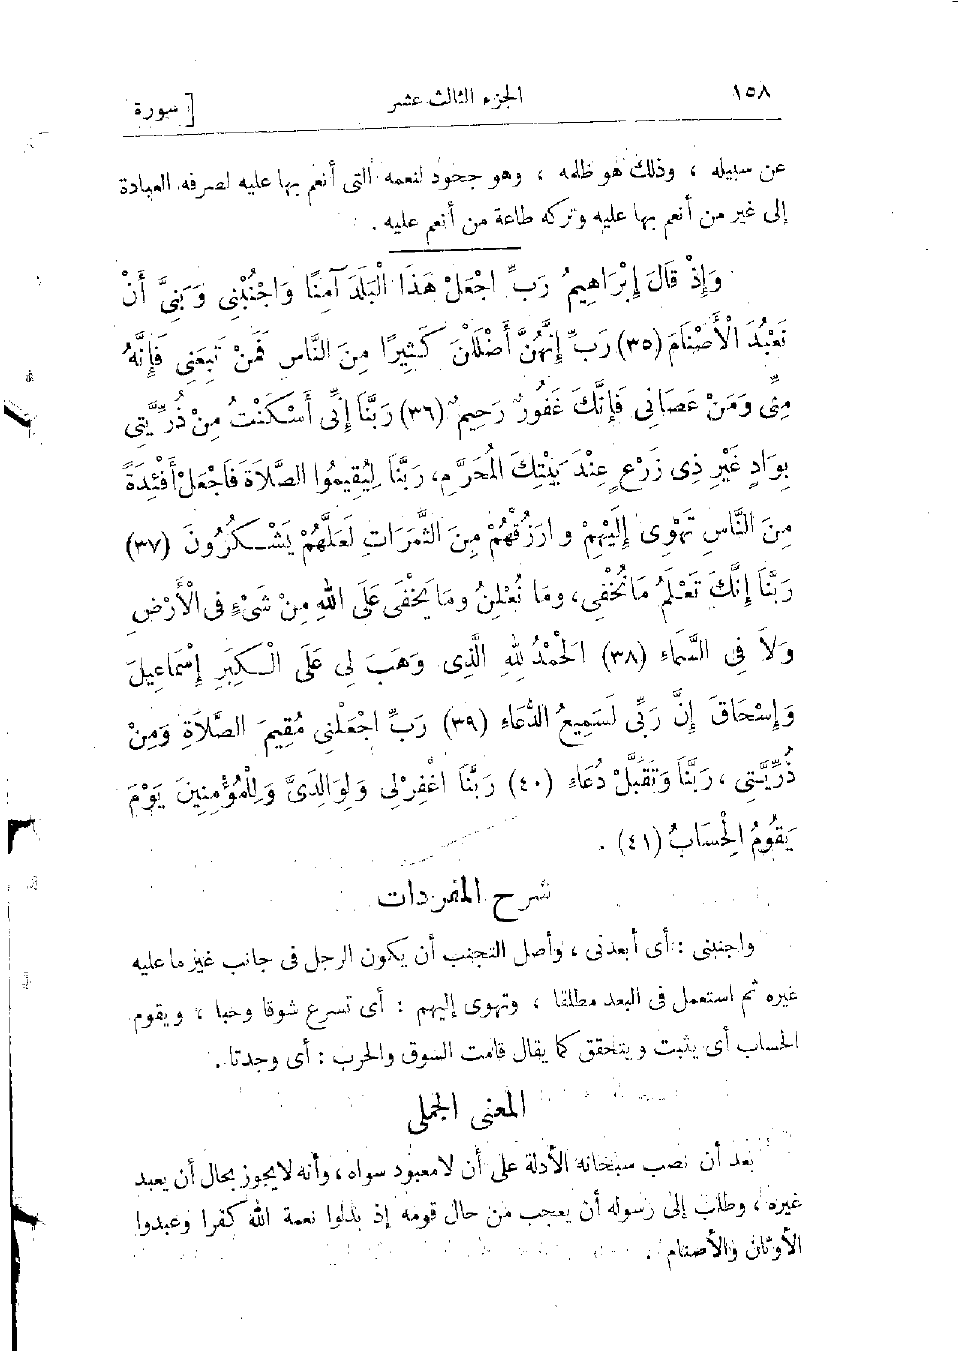 ١٥٨ الجزء الثالث عشر [ سورة
عن سبيله ، وذلك هو ظلمه ، وهو جحود لنعمه التى أنعم بها عليه لصرفه العبادة
إلى غير من أنعم بها عليه وتركه طاعة من أنعم عليه .
وَإِذْ قَالَ إِبْرَاهِيمُ رَبِّ اجْعَلْ هَذَا الْبَلَدَ آمِنًا وَاجْنُبْنِى وَبَنِىَّ أَنْ
نَعْبُدَ الْأَصْنَامَ (٣٥) رَبِّ إِنَّهُنَّ أَضْلَلْنَ كَثِيرًا مِنَ النَّاسِ فَمَنْ تَبِعَنِى فَإِنَّهُ
مِنِّى وَمَنْ عَصَانِى فَإِنَّكَ غَفُورٌ رَحِيمٌ (٣٦) رَبَّنَا إِنِّى أَسْكَنْتُ مِنْ ذُرِّيَّتِى
بِوَادٍ غَيْرِ ذِى زَرْعٍ عِنْدَ بَيْتِكَ الْمُحَرَّمِ، رَبَّنَا لِيُقِيمُوا الصَّلَاةَ فَاجْعَلْ أَفْئِدَةً
مِنَ النَّاسِ تَهْوِى إِلَيْهِمْ وارْزُقْهُمْ مِنَ الثَّمَرَاتِ لَعَلَّهُمْ يَشْكُرُونَ (٣٧)
رَبَّنَا إِنَّكَ تَعْلَمُ مَا نُخْفِى، ومَا نُعْلِنُ ومَا يَخْفَى عَلَى اللهِ مِنْ شَىْءٍ فى الْأَرْضِ
وَلَا فِى السَّمَاءِ (٣٨) الْحَمْدُ لِلهِ الَّذِى وَهَبَ لِى عَلَى الْكِبَرِ إِسْمَاعِيلَ
وَإِسْحَاقَ إِنَّ رَبِّى لَسَمِيعُ الدُّعَاءِ (٣٩) رَبِّ اجْعَلْنِى مُقِيمَ الصَّلَاةِ وَمِنْ
ذُرِّيَّتِى ، رَبَّنَا وَتَقَبَّلْ دُعَاءِ (٤٠) رَبَّنَا اغْفِرْلِى وَلِوَالِدَىَّ وَلِلْمُؤْمِنِينَ يَوْمَ
يَقُومُ الْحِسَابُ (٤١) .
شرح المفردات
واجنبنى : أى أبعدنى ، وأصل التجنب أن يكون الرجل فى جانب غير ما عليه
غيره ثم استعمل فى البعد مطلقا ، وتهوى إليهم : أى تسرع شوقا وحبا ، ويقوم
الحساب أى يثبت ويتحقق كما يقال قامت السوق والحرب : أى وجدتا .
المعنى الجملى
بعد أن نصب سبحانه الأدلة على أن لامعبود سواه ، وأنه لايجوز بحال أن يعبد
غيره ، وطلب إلى رسوله أن يعجب من حال قومه إذ بدلوا نعمة الله كفرا وعبدوا
الأوثان والأصنام .